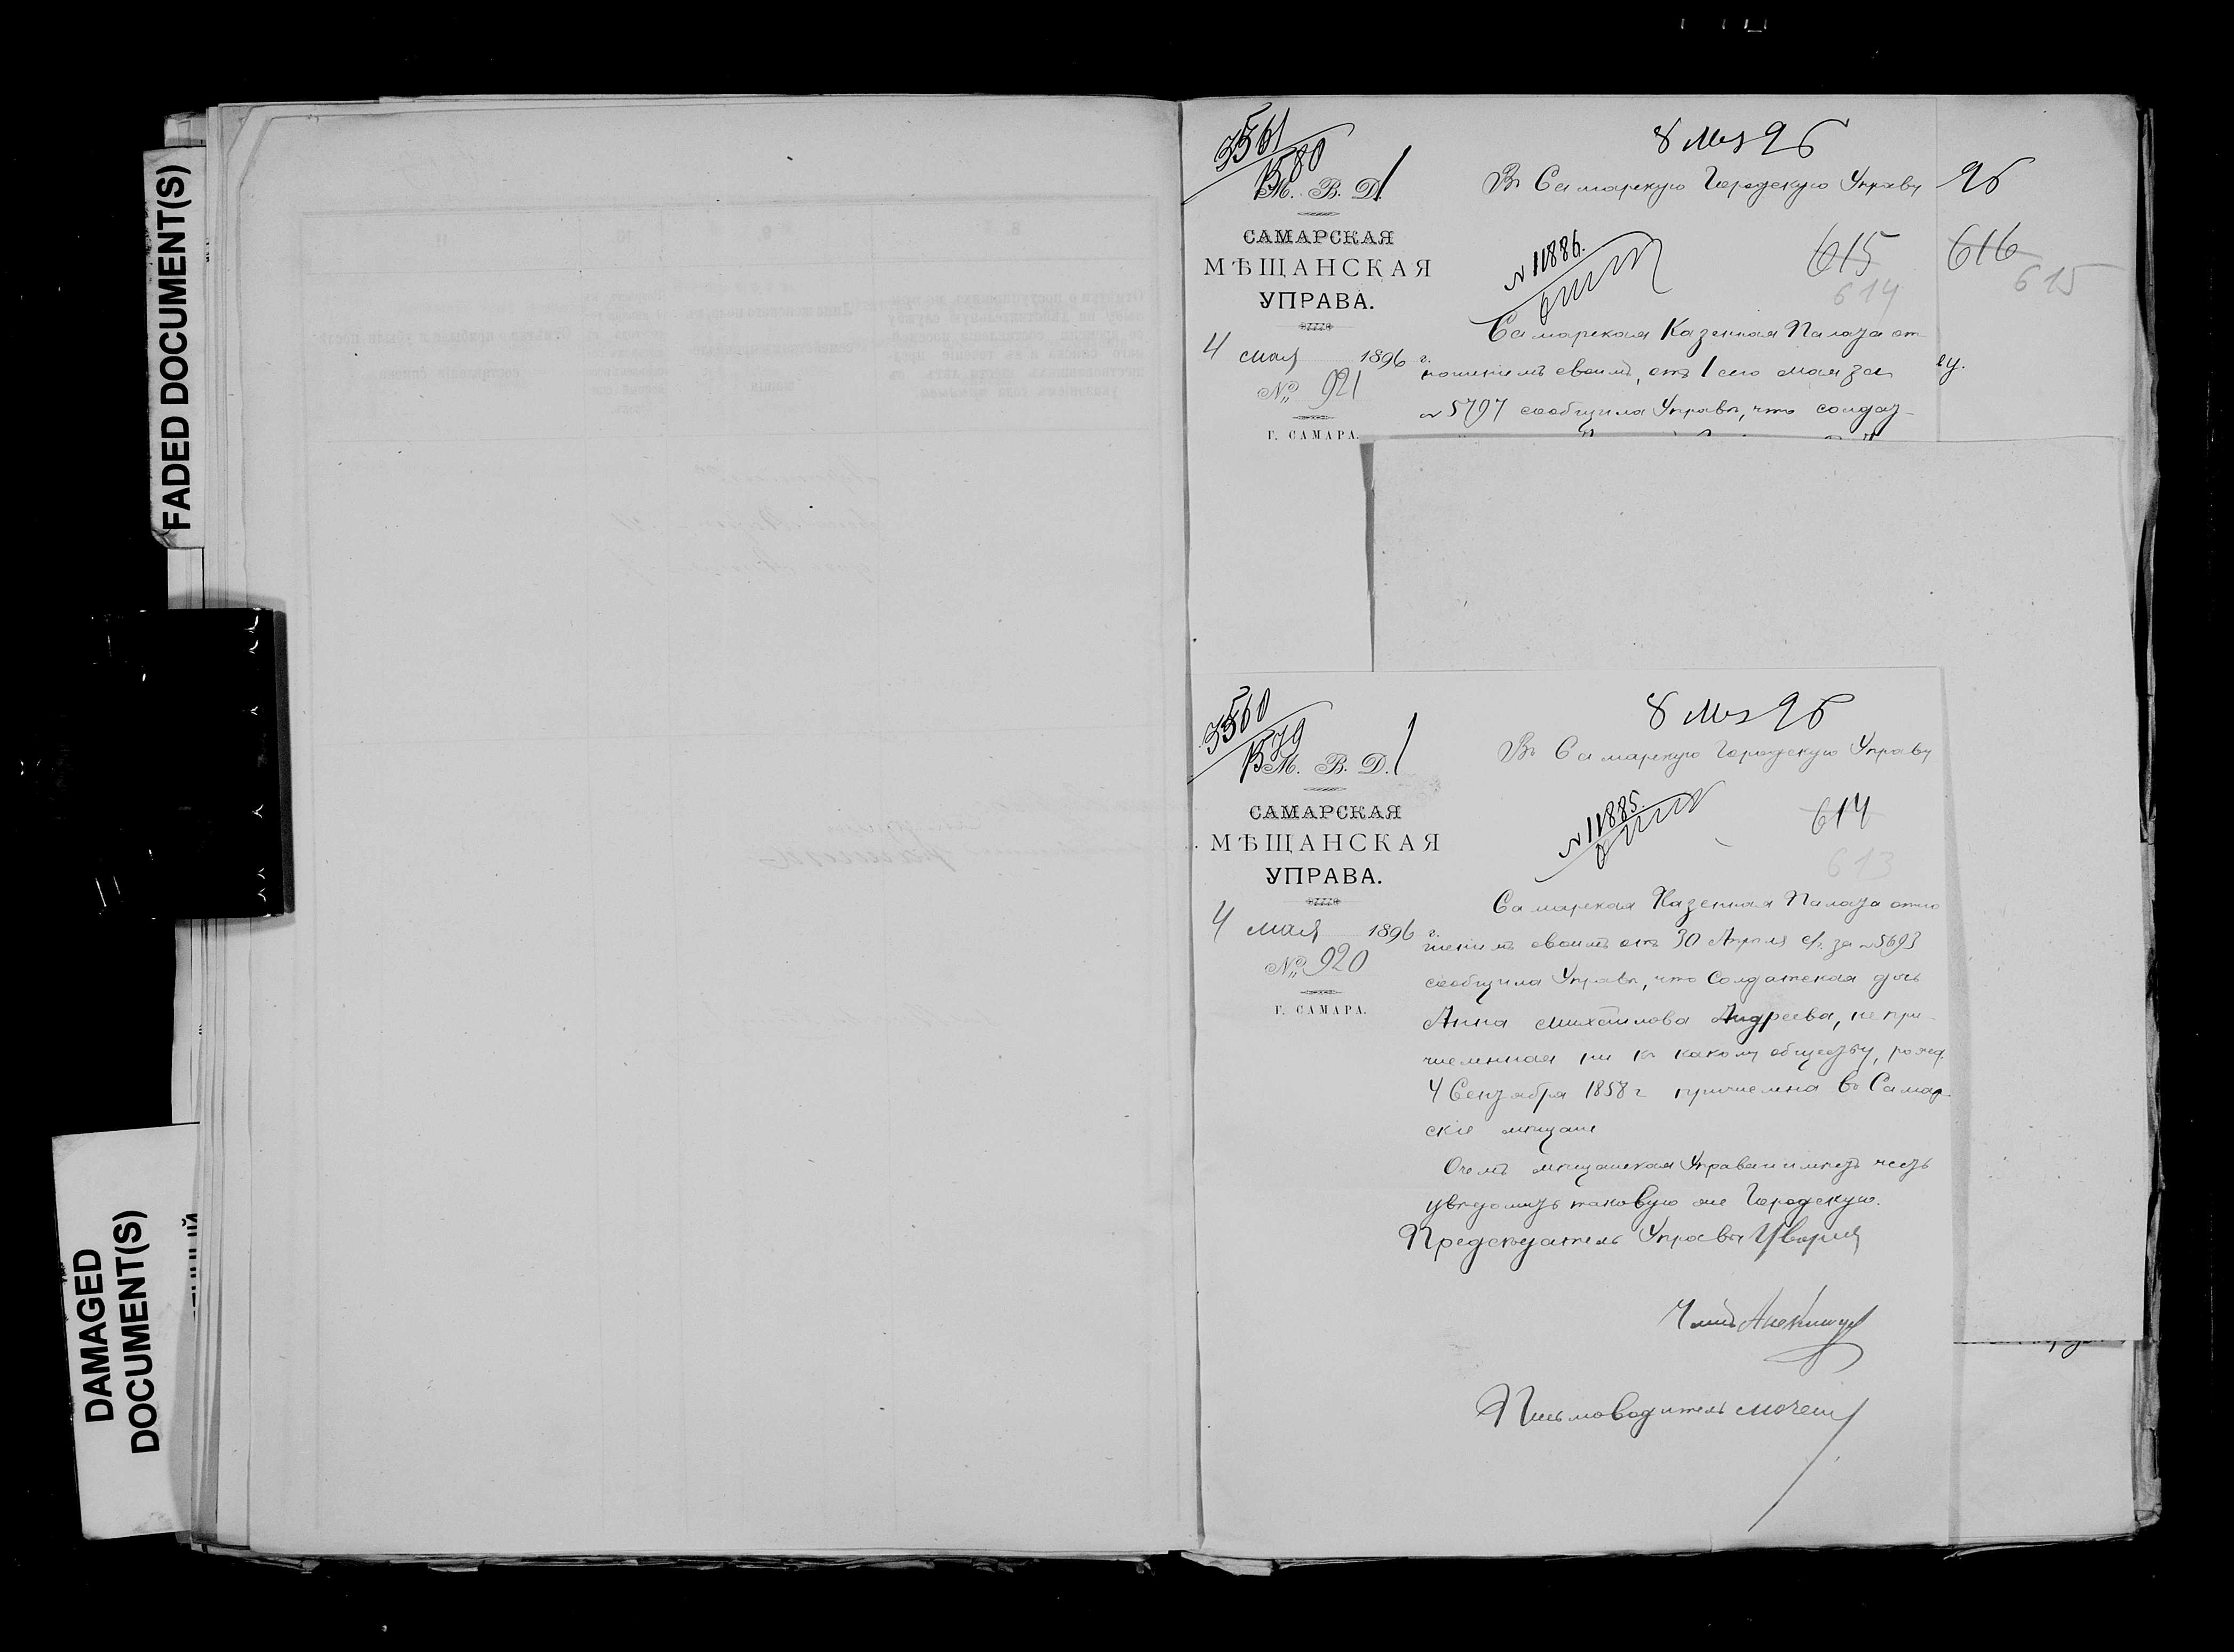 FADED DOCUMENT(S)
DAMAGED
DOCUMENT(S)
3561
1580
8 Мая 96
М. В. Д.
САМАРСКАЯ
МѢЩАНСКАЯ
УПРАВА.
4 мая 1896 г.
№ 921
Г. САМАРА.
Въ Самарскую Городскую Управу
N 11886.
615
614
Самарская Казенная Палата от
ношенiемъ своимъ, отъ 1 сего мая за
N 5797 сообщила Управѣ, что солдат-
96
616
615
еу.
3560
1579
8 Мая 96
М. В. Д.
САМАРСКАЯ
МѢЩАНСКАЯ
УПРАВА.
4 мая 1896 г.
№ 920
Г. САМАРА.
Въ Самарскую Городскую Управу
N 11885.
614
613
Самарская Казенная Палата отно
шенiемъ своимъ отъ 30 Апрѣля с/г. за N 5693
сообщила Управѣ, что Солдатская дочь
Анна Михайлова Андреева, не при-
численная ни къ какому обществу, рожд.
4 Сентября 1858 г. причислена въ Самар-
скiе мѣщане
О чемъ мѣщанская Управа и имѣетъ честь
увѣдомить таковую же Городскую.
Предсѣдатель Управы
Членъ
Письмоводитель